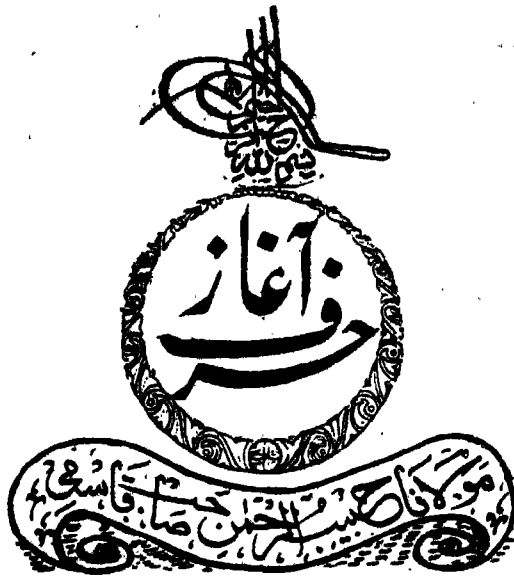 بسم الله الرحمن الرحیم
حرف آغاز
مولانا حبیب الرحمٰن صاحب قاسمی